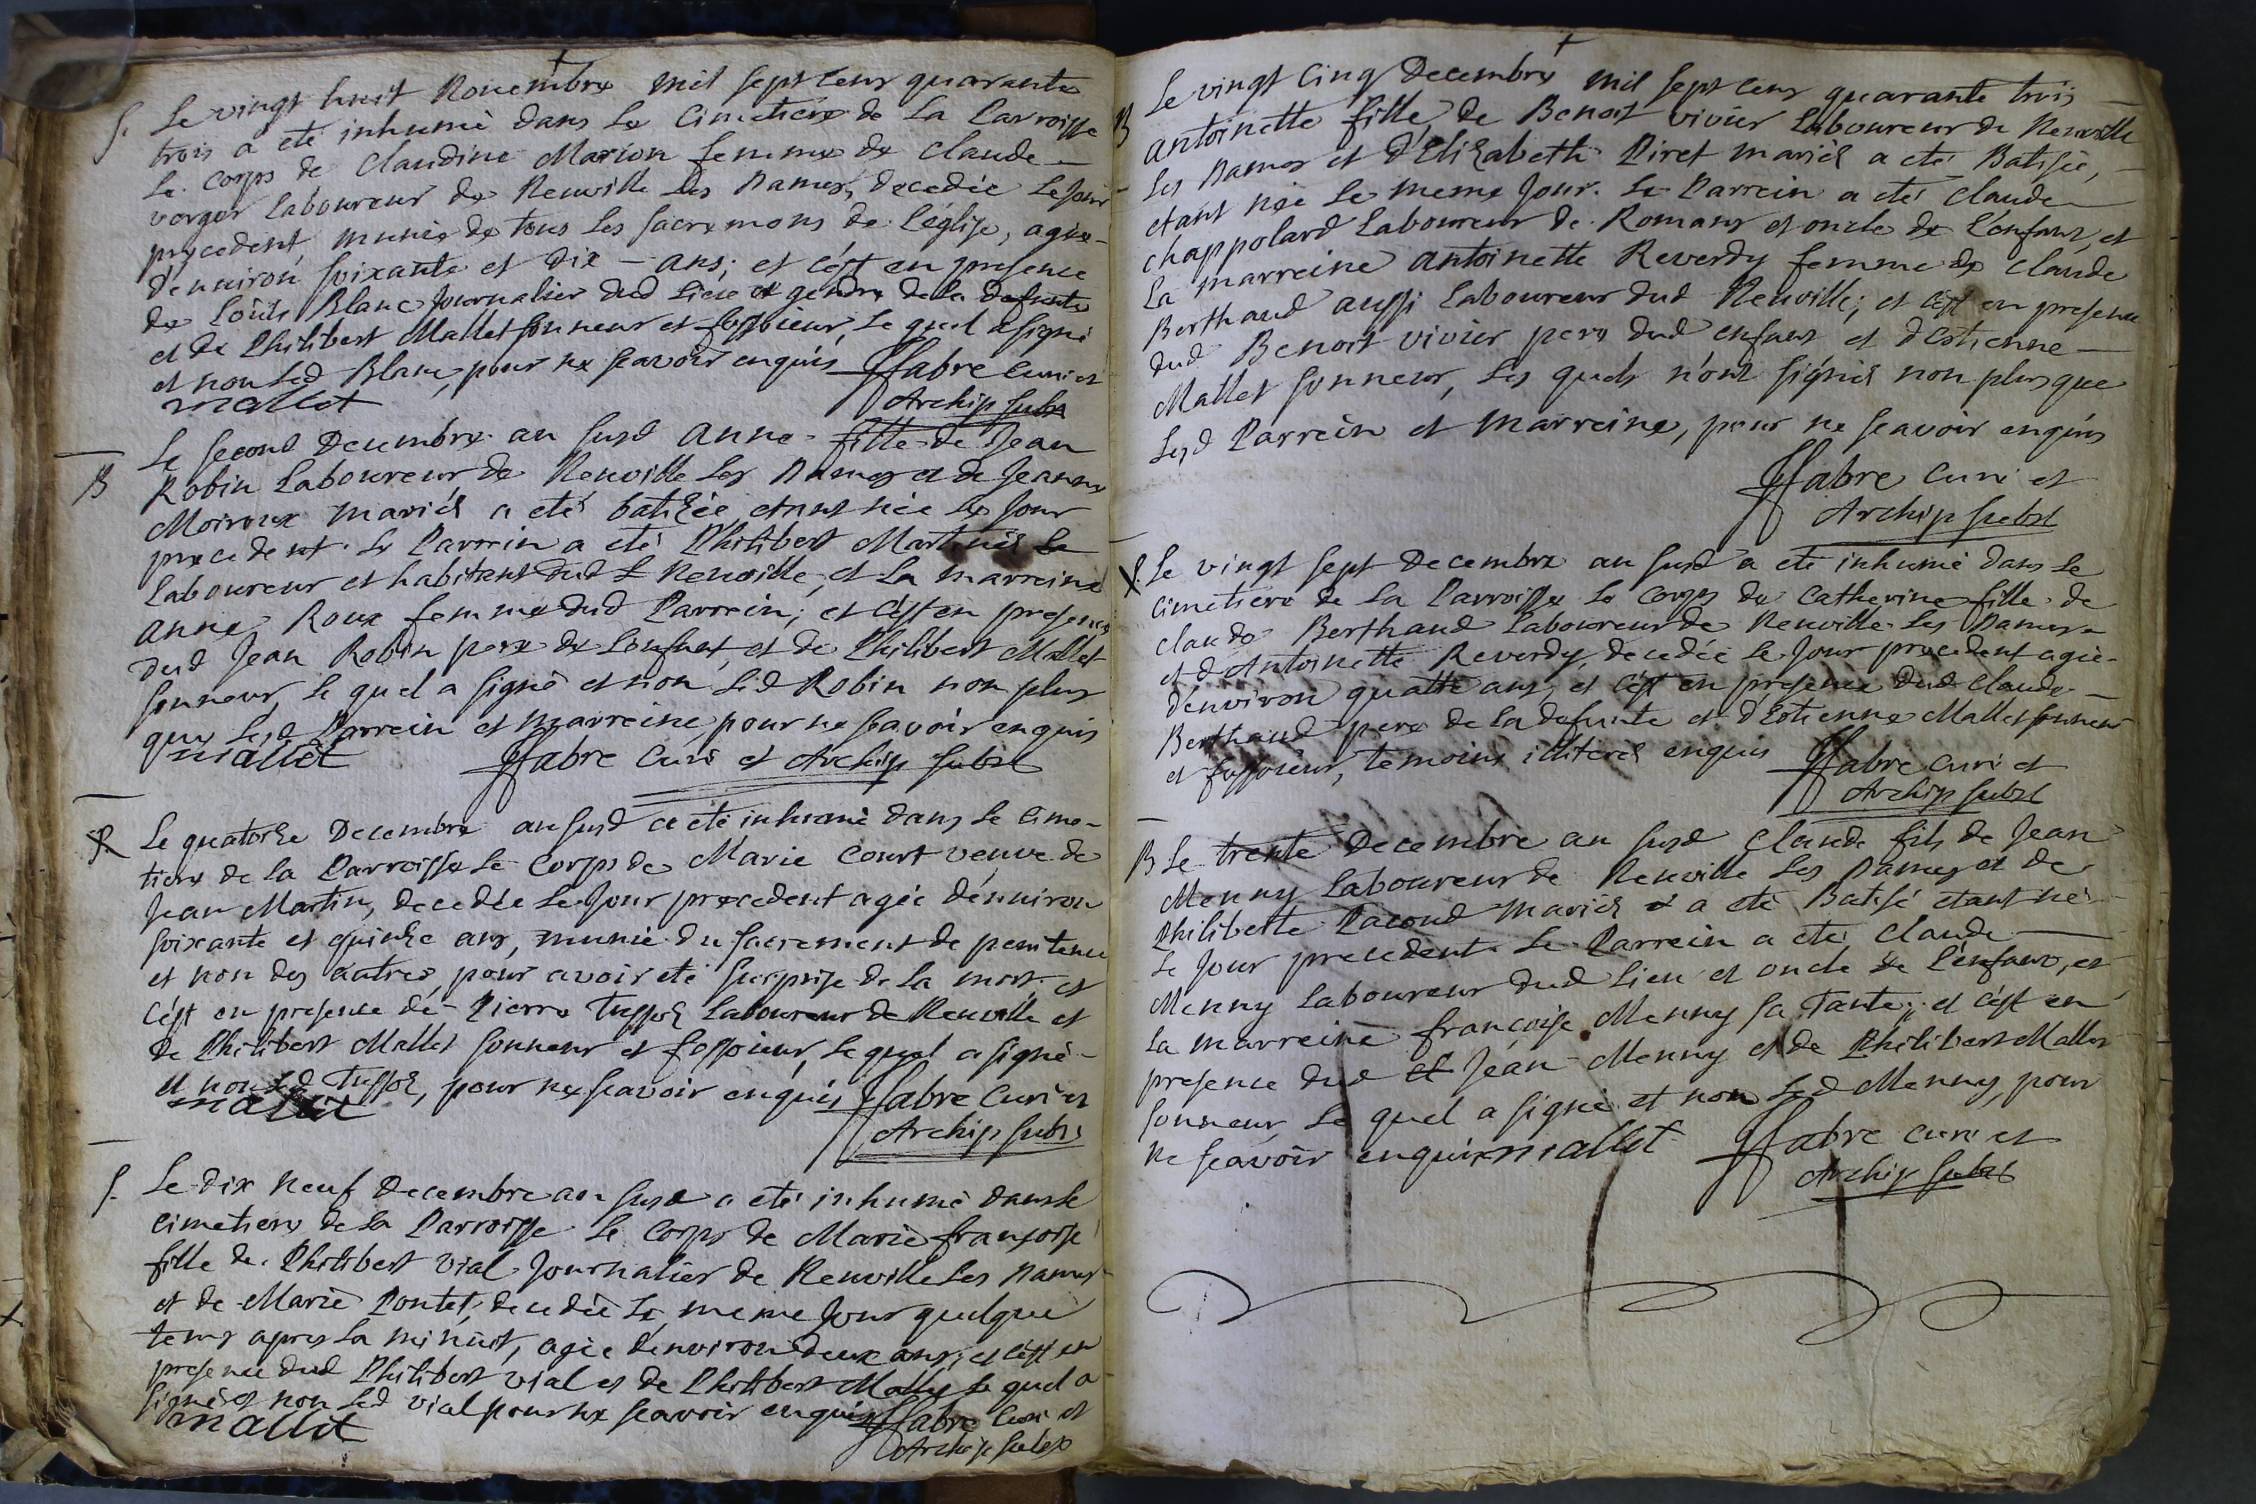 S. Le vingt huit Novembre mil sept cens quarante
trois a eté inhumé dans Le Cimetiere de La Parroisse
Le corps de Claudine Marion femme de Claude
verger Laboureur de Neuville Les Dames, decedée Le Jour
precedent, munie de tous Les sacremens de L'église, agée
d'environ soixante et dix ans; et c'est en presence
de Loüis Blanc Journalier dud Lieu et gendre de la defunte
et de Philibert Mallet sonneur et fossoieur, Le quel a signé
et non Led Blanc, pour ne scavoir enquis ffabre curé et
mallet Archip subst
B Le second Decembre an susd Anne fille de Jean
Robin Laboureur de Neuville Les Dames et de Jeanne
Moiroux mariés a eté batizée etant née Le Jour
precedent. Le Parrein a eté Philibert Martin
Laboureur et habitant dud Neuville, et La marreine
Anne Roux femme dud Parrein; et c'est en presence
dud Jean Robin pere de L'enfant, et de Philibert Mallet
sonneur, Le quel a signé et non Led Robin non plus
que Lesd Parrein et marreine pour ne scavoir enquis
mallet ffabre curé et Archip subst
S. Le quatorze Decembre an susd a eté inhumé dans Le cime-
tiere de La Parroisse Le Corps de Marie Court veuve de
Jean Martin, decedée Le Jour precedent agée d'environ
soixante et quinze ans, munie du sacrement de penitence
et non des autres, pour avoir eté surprise de La mort et
c'est en presence de Pierre Laboureur de Neuville et
de Philibert Mallet sonneur et fossoieur, Le quel a signé
et non Led, pour ne scavoir enquis ffabre curé et
mallet Archip subst
S. Le dix neuf Decembre an susd a eté inhumé dans Le
cimetiere de La Parroisse Le Corps de Marie françoise
fille de Philibert Vial Journalier de Neuville Les Dames
et de Marie Pontet, decedée Le meme Jour quelque
tems apres La minuit, agée d'environ deux ans; et c'est en
presence dud Philibert Vial et de Philibert Mallet Le quel a
signé et non Led Vial pour ne scavoir enquis ffabre curé et
mallet Archip subst
B Le vingt cinq Decembre mil sept cens quarante trois
Antoinette fille de Benoit vivier Laboureur de Neuville
Les Dames et d'Elizabeth Piret mariés a eté Batisée,
etant née Le meme Jour. Le Parrein a eté Claude
chappolard Laboureur de Romans et oncle de L'enfant, et
La marreine Antoinette Reverdy femme de Claude
Berthaud aussi Laboureur dud Neuville; et c'est en presence
dud Benoit vivier pere dud enfant et d'Estienne
Mallet sonneur, Les quels n'ont signés non plus que
Lesd Parrein et Marreine, pour ne scavoir enquis
ffabre curé et
Archip subst
S. Le vingt sept Decembre an susd a eté inhumé dans Le
cimetiere de La Parroisse Le Corps de Catherine fille de
Claude Berthaud Laboureur de Neuville Les Dames
et d'Antoinette Reverdy, decedée Le Jour precedent agée
d'environ quatre ans, et c'est en presence dud Claude
Berthaud pere de La defunte et d'Estienne Mallet sonneur
et fossoieur, temoins illiterés enquis ffabre curé et
Archip subst
B Le trente Decembre an susd Claude fils de Jean
Menny Laboureur de Neuville Les Dames et de
Philiberte Pacoud mariés a eté Batisé etant né
Le Jour precedent. Le Parrein a eté Claude
Menny Laboureur dud Lieu et oncle de L'enfant, et
La marreine françoise Menny sa Tante; et c'est en
presence dud Jean Menny et de Philibert Mallet
sonneur Le quel a signé et non Led Menny, pour
ne scavoir enquis mallet ffabre curé et
Archip subst